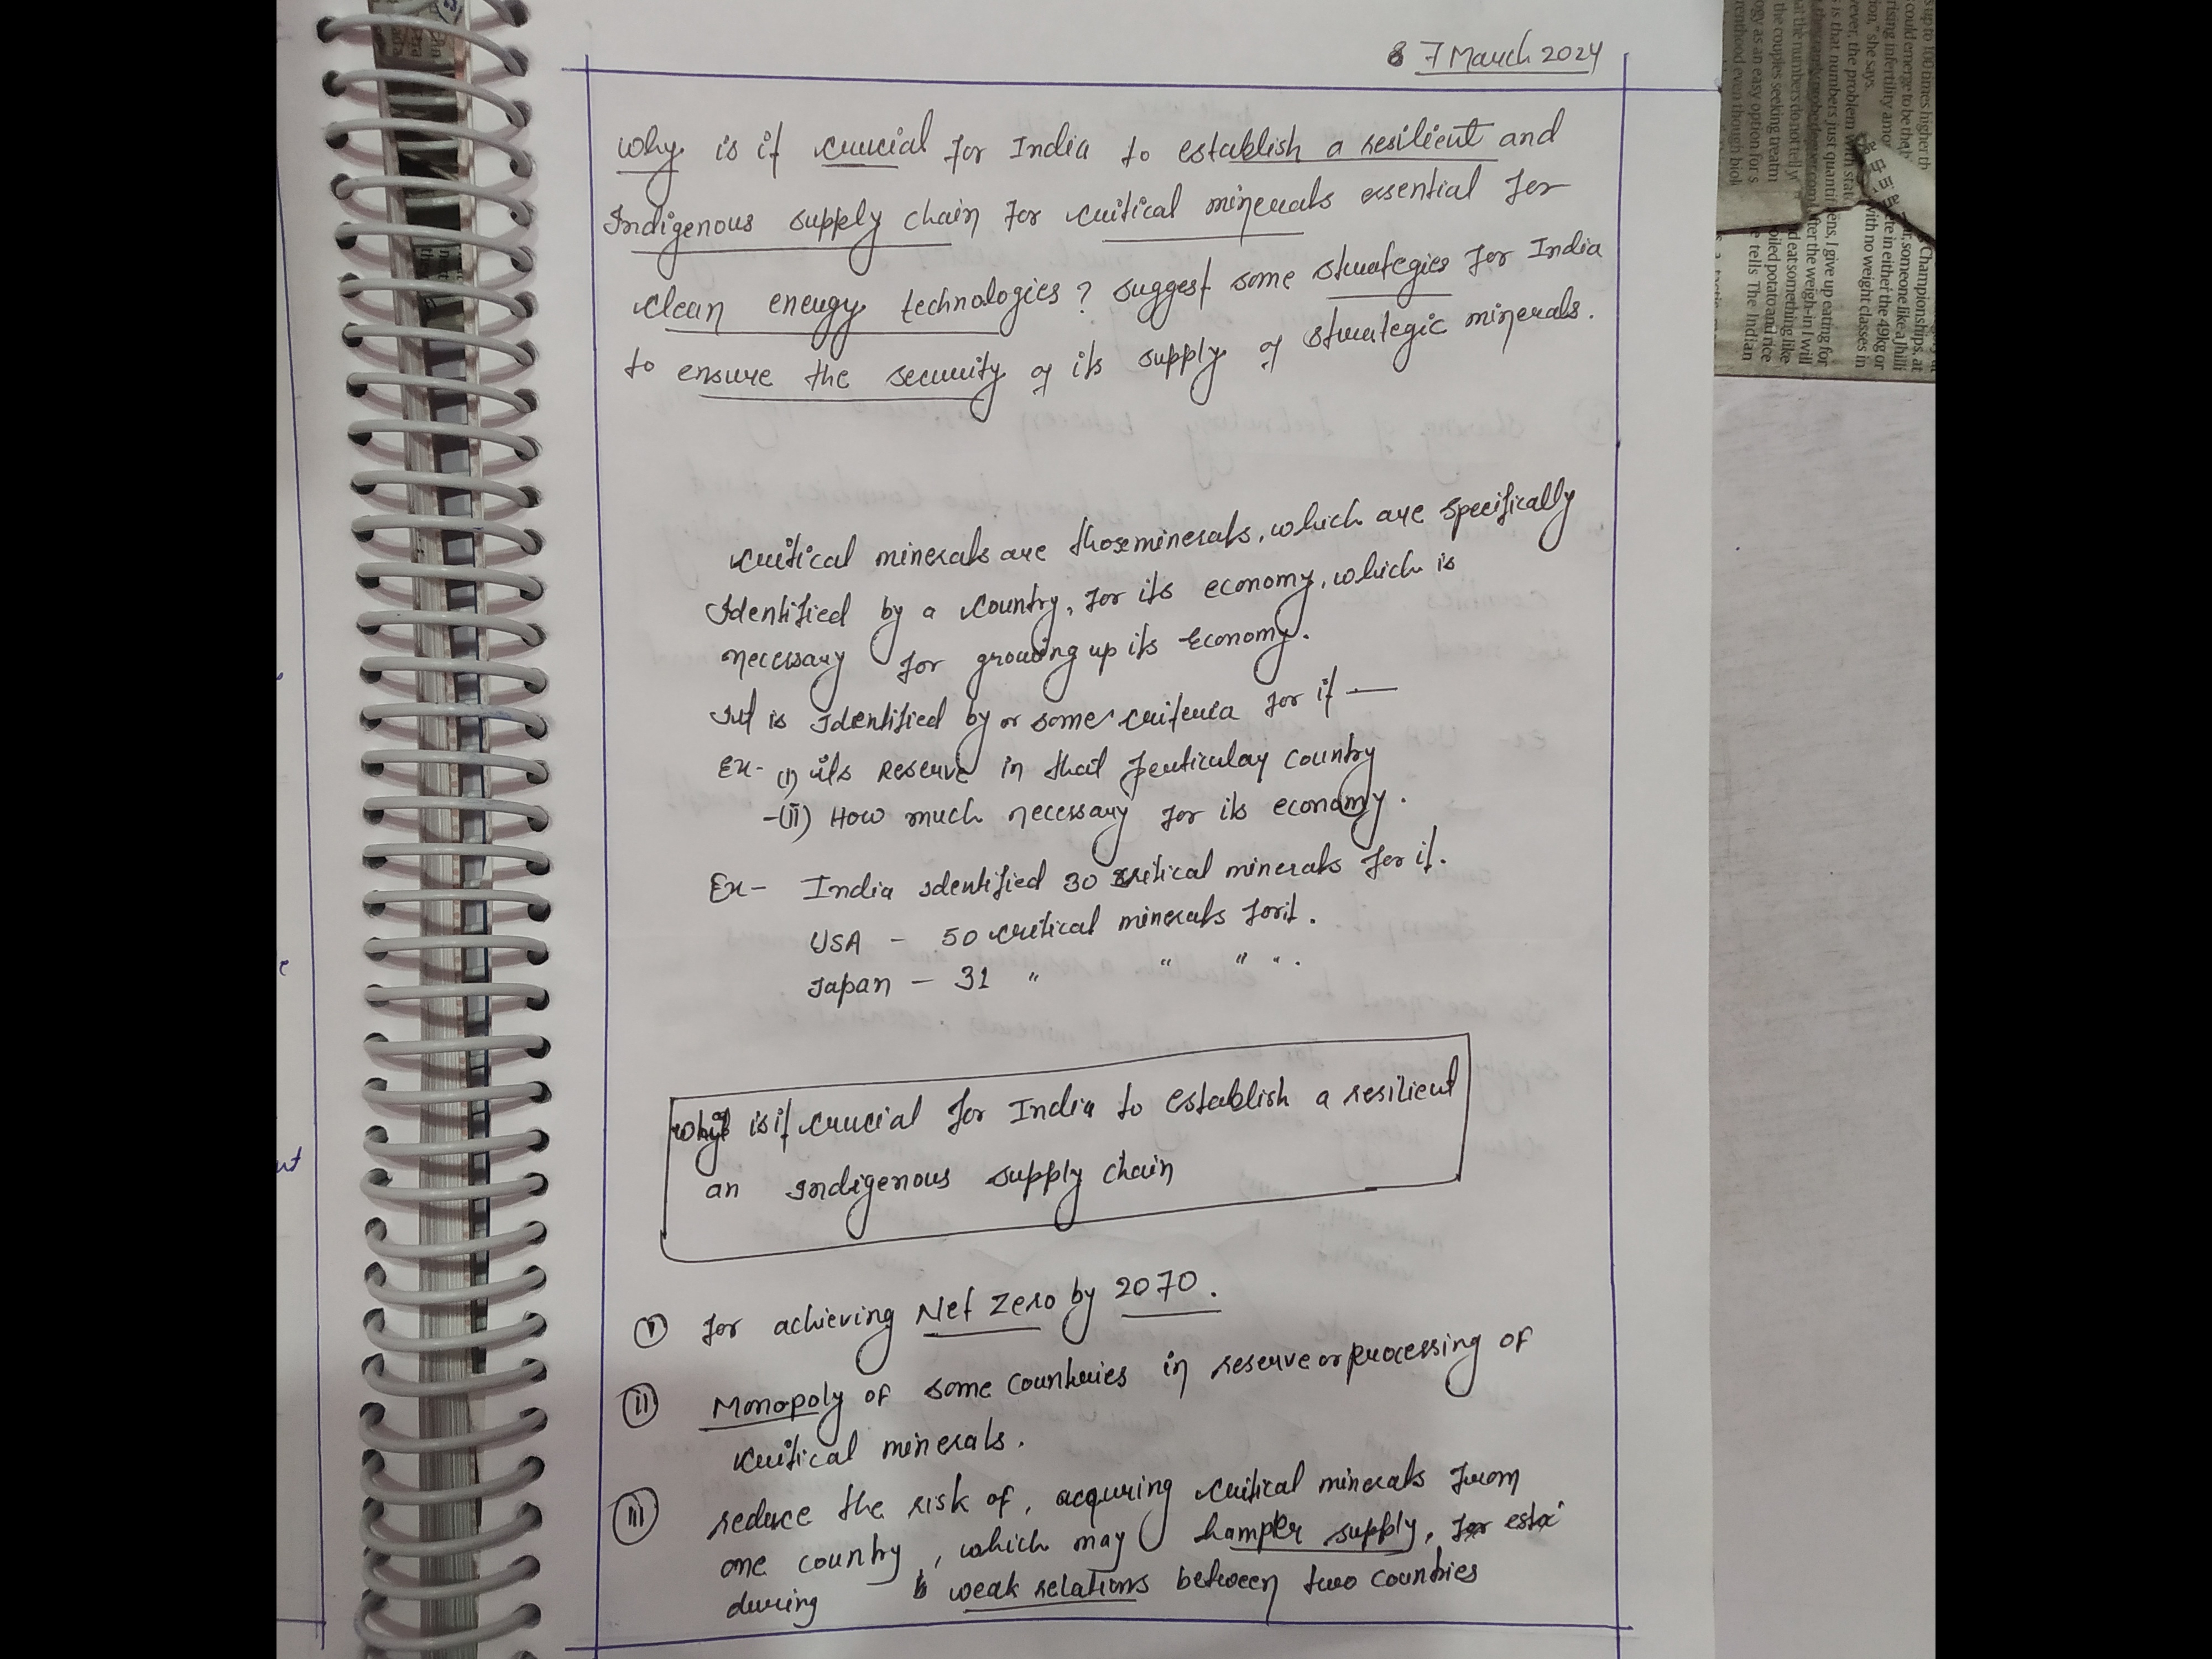 8 7 March 2024
Why is it crucial for India to establish a resilient and
Indigenous supply chain for critical minerals essential for
clean energy technologies? suggest some strategies for India
to ensure the security of its supply of strategic minerals.
critical minerals are those minerals, which are specifically
Identified by a country, for its economy, which is
necessary for growing up its Economy.
Iut is Identified by or some criteria for it —
Ex- (i) its Reserve in that perticular country
-(ii) How much necessary for its economy.
Ex- India identified 30 critical minerals for it.
USA - 50 critical minerals for it.
Japan - 31 " " " " .
Why is it crucial for India to establish a resilient
an indigenous supply chain
(i) for achieving Net Zero by 2070.
(ii) Monopoly of some countries in reserve or processing of
critical minerals.
(iii) reduce the risk of, acquring critical minerals from
one country, which may hamper supply,
during weak relations between two countries
up to 100 times higher th
could emerge to be the
rising infertility amo
ion," she says.
ever, the problem with stat
s is that numbers just quantif
at the numbers do not tell
the couples seeking treatm
ogy as an easy option for s
renthood even though biol
Championships, at
r, someone like a Jhilli
ete in either the 49kg or
with no weight classes in
ens, I give up eating for
fter the weigh-in I will
d eat something like
oiled potato and rice
e tells The Indian